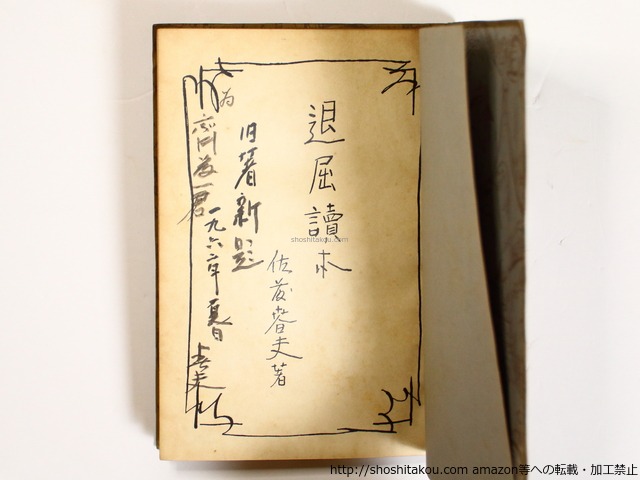 退屈讀本
佐藤春夫著
旧著新題
一九六一年 夏日
春夫
為
齊藤君
shoshitakou.com
http://shoshitakou.com amazon等への転載・加工禁止